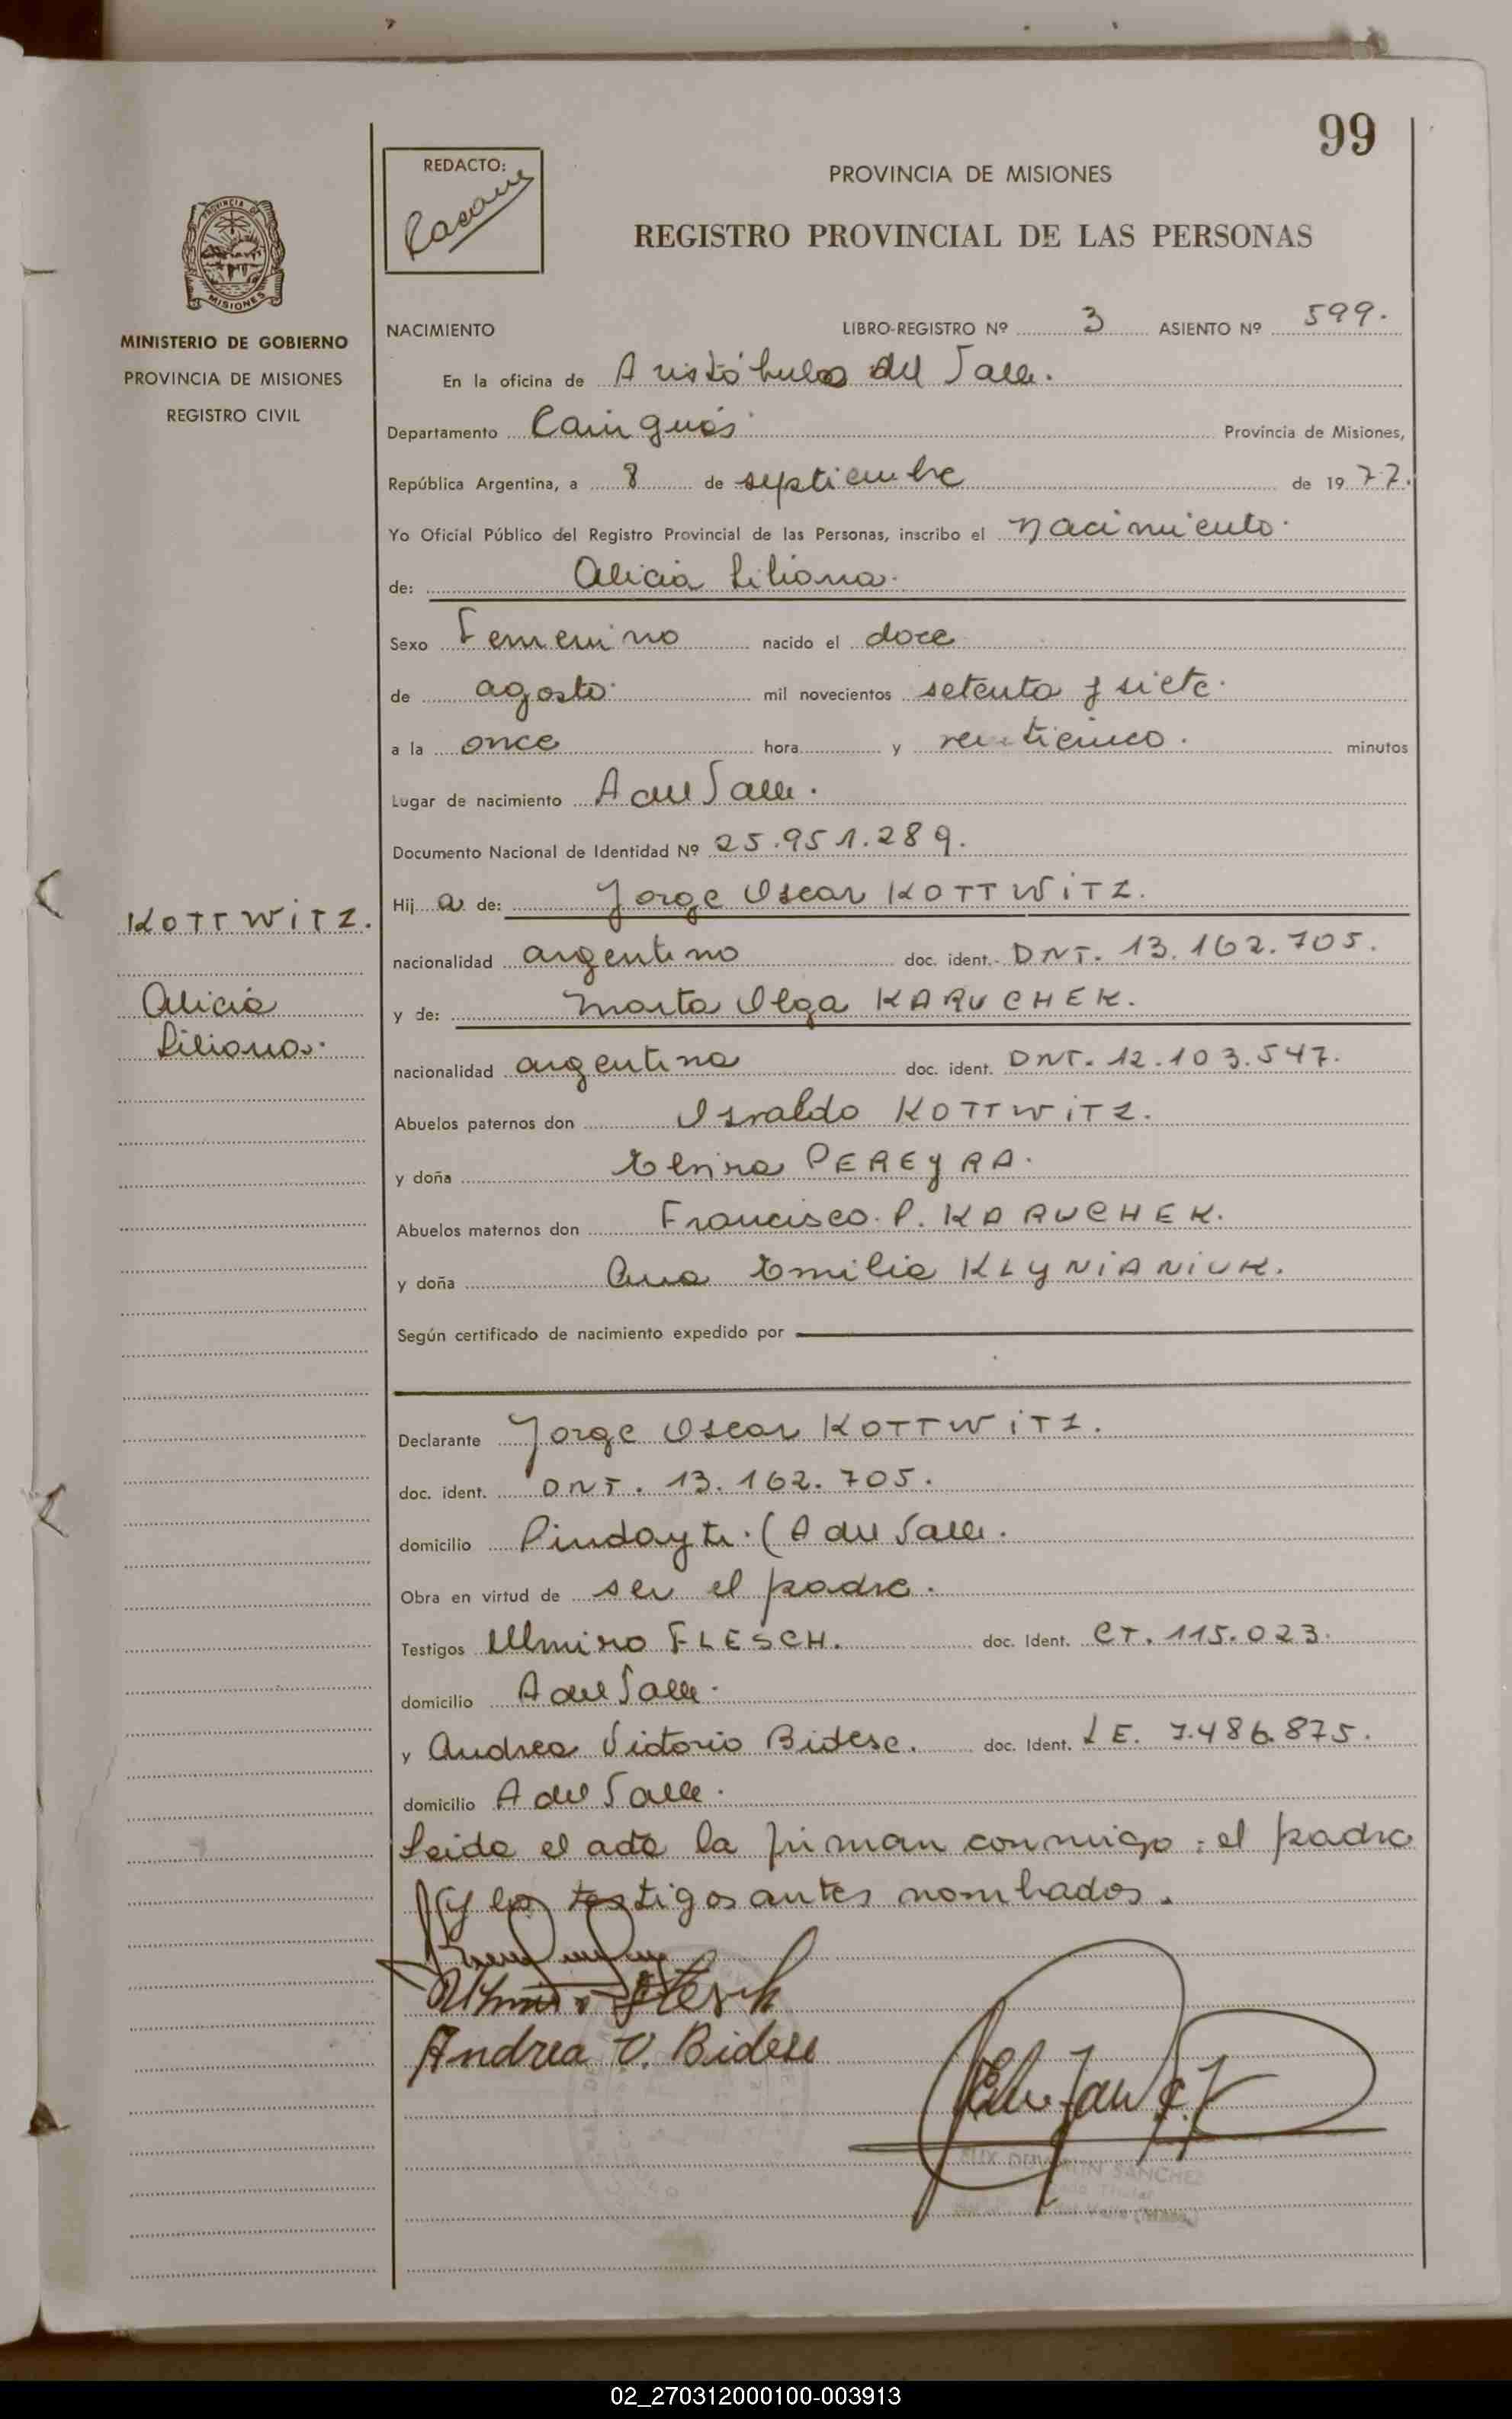 99
REDACTO:
PROVINCIA DE MISIONES
REGISTRO PROVINCIAL DE LAS PERSONAS
PROVINCIA DE
MISIONES
MINISTERIO DE GOBIERNO
PROVINCIA DE MISIONES
REGISTRO CIVIL
NACIMIENTO LIBRO-REGISTRO Nº 3 ASIENTO Nº 599.
En la oficina de Aristóbulo del Valle.
Departamento Cainguás Provincia de Misiones,
República Argentina, a 8 de septiembre de 1977.
Yo Oficial Público del Registro Provincial de las Personas, inscribo el nacimiento.
de: Alicia Liliana.
Sexo Femenino nacido el doce
de agosto. mil novecientos setenta y siete.
a la once hora y veinticinco. minutos
Lugar de nacimiento A del Valle.
Documento Nacional de Identidad Nº 25.951.289.
Hij a de: Jorge Oscar KOTTWITZ.
KOTTWITZ.
nacionalidad argentino doc. ident. DNI. 13.162.705.
Alicia
y de: Marta Olga KARUCHEK.
Liliana.
nacionalidad argentina doc. ident. DNI. 12.103.547.
Abuelos paternos don Osvaldo KOTTWITZ.
y doña Elvira PEREYRA.
Abuelos maternos don Francisco P. KARUCHEK.
y doña Ana Emilia KLYNIANIUK.
Según certificado de nacimiento expedido por
Declarante Jorge Oscar KOTTWITZ.
doc. ident. DNI. 13.162.705.
domicilio Pindayti. (A del Valle.
Obra en virtud de ser el padre.
Testigos Ulmiro FLESCH. doc. Ident. CI. 115.023.
domicilio A del Valle.
y Andrea Victorio Bidese. doc. Ident. LE. 7.486.875.
domicilio A del Valle.
Leida el acta la firman conmigo: el padre
y los testigos antes nombados.
Flesch
Andrea V. Bidese
SANCHEZ
02_270312000100-003913